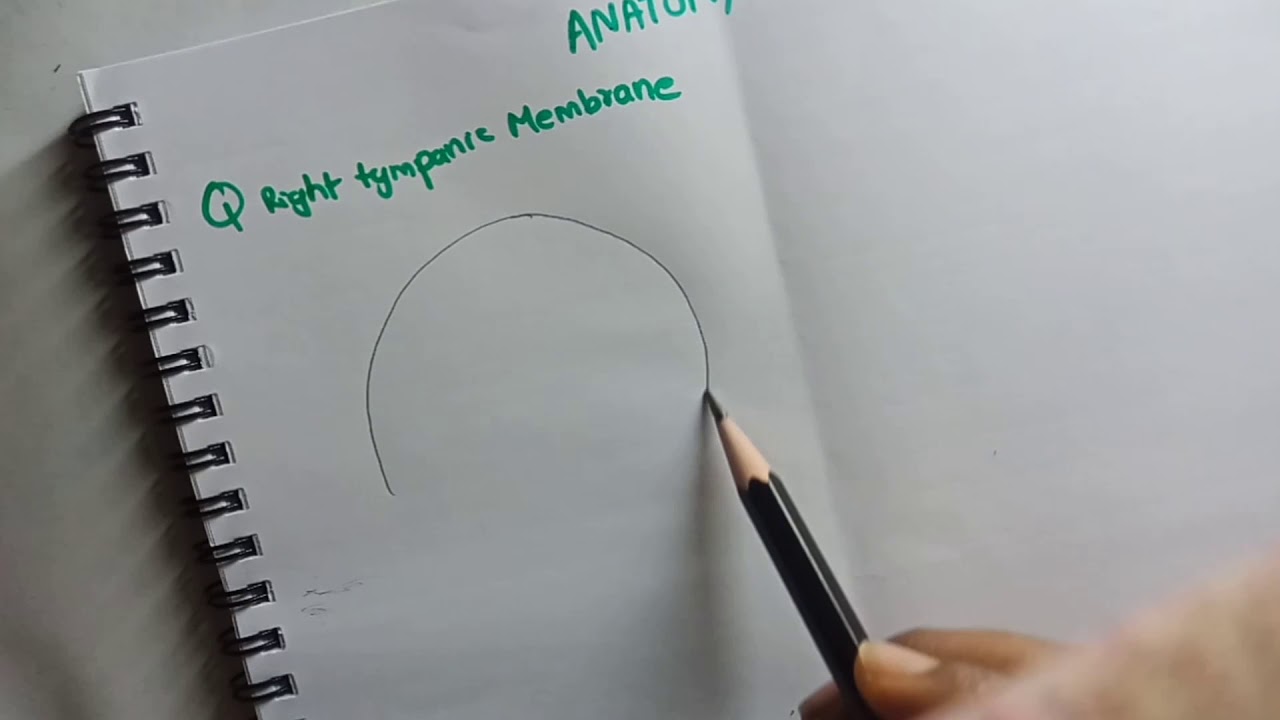 ANATOMY
Q Right tympanic Membrane